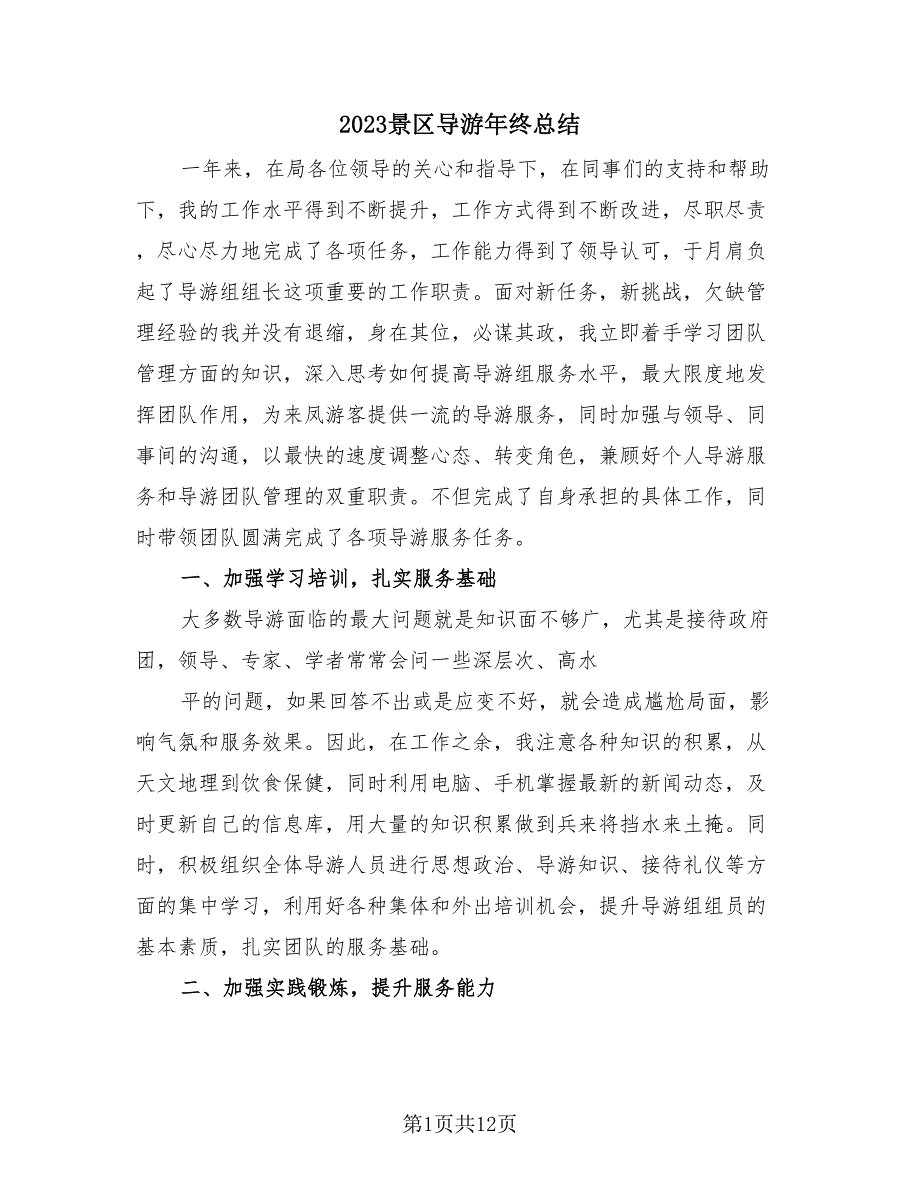 2023景区导游年终总结
一年来，在局各位领导的关心和指导下，在同事们的支持和帮助
下，我的工作水平得到不断提升，工作方式得到不断改进，尽职尽责
，尽心尽力地完成了各项任务，工作能力得到了领导认可，于月肩负
起了导游组组长这项重要的工作职责。面对新任务，新挑战，欠缺管
理经验的我并没有退缩，身在其位，必谋其政，我立即着手学习团队
管理方面的知识，深入思考如何提高导游组服务水平，最大限度地发
挥团队作用，为来凤游客提供一流的导游服务，同时加强与领导、同
事间的沟通，以最快的速度调整心态、转变角色，兼顾好个人导游服
务和导游团队管理的双重职责。不但完成了自身承担的具体工作，同
时带领团队圆满完成了各项导游服务任务。
一、加强学习培训，扎实服务基础
大多数导游面临的最大问题就是知识面不够广，尤其是接待政府
团，领导、专家、学者常常会问一些深层次、高水
平的问题，如果回答不出或是应变不好，就会造成尴尬局面，影
响气氛和服务效果。因此，在工作之余，我注意各种知识的积累，从
天文地理到饮食保健，同时利用电脑、手机掌握最新的新闻动态，及
时更新自己的信息库，用大量的知识积累做到兵来将挡水来土掩。同
时，积极组织全体导游人员进行思想政治、导游知识、接待礼仪等方
面的集中学习，利用好各种集体和外出培训机会，提升导游组组员的
基本素质，扎实团队的服务基础。
二、加强实践锻炼，提升服务能力
第1页共12页